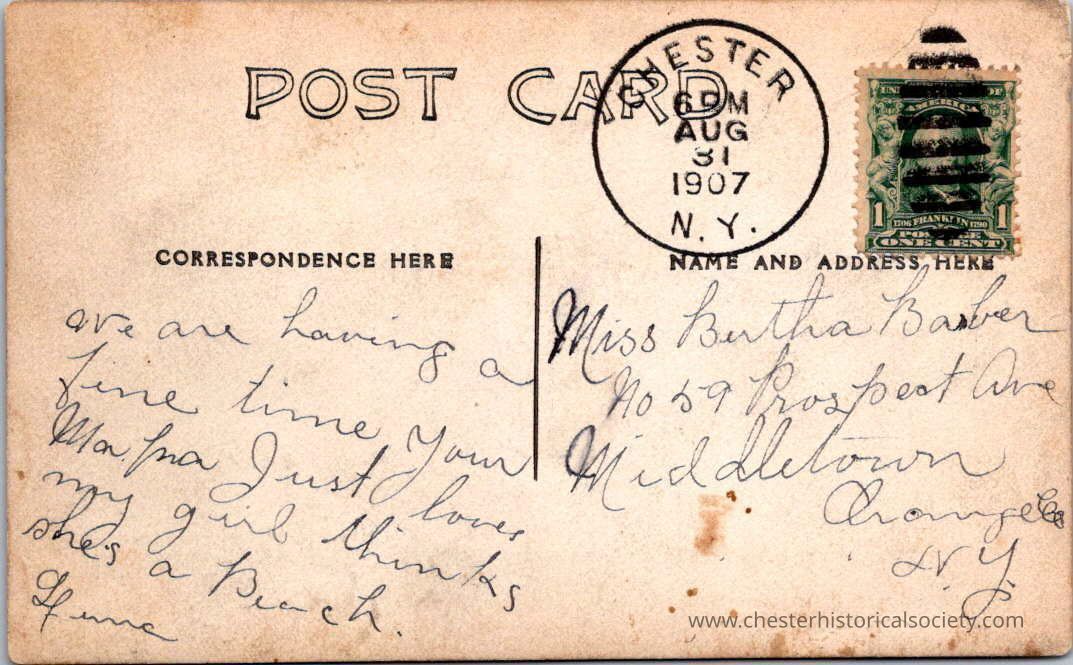 POST CARD
CHESTER
6 PM
AUG
31
1907
N.Y.
UNITED STATES OF
AMERICA
1 1706 FRANKLIN 1790 1
POSTAGE
ONE CENT
CORRESPONDENCE HERE
NAME AND ADDRESS HERE
We are having a
fine time Your
Ma &
Just loves
my girl thinks
she's a Peach.
Miss Bertha Barber
No 59 Prospect Ave
Middletown
Orange Co
N Y
www.chesterhistoricalsociety.com